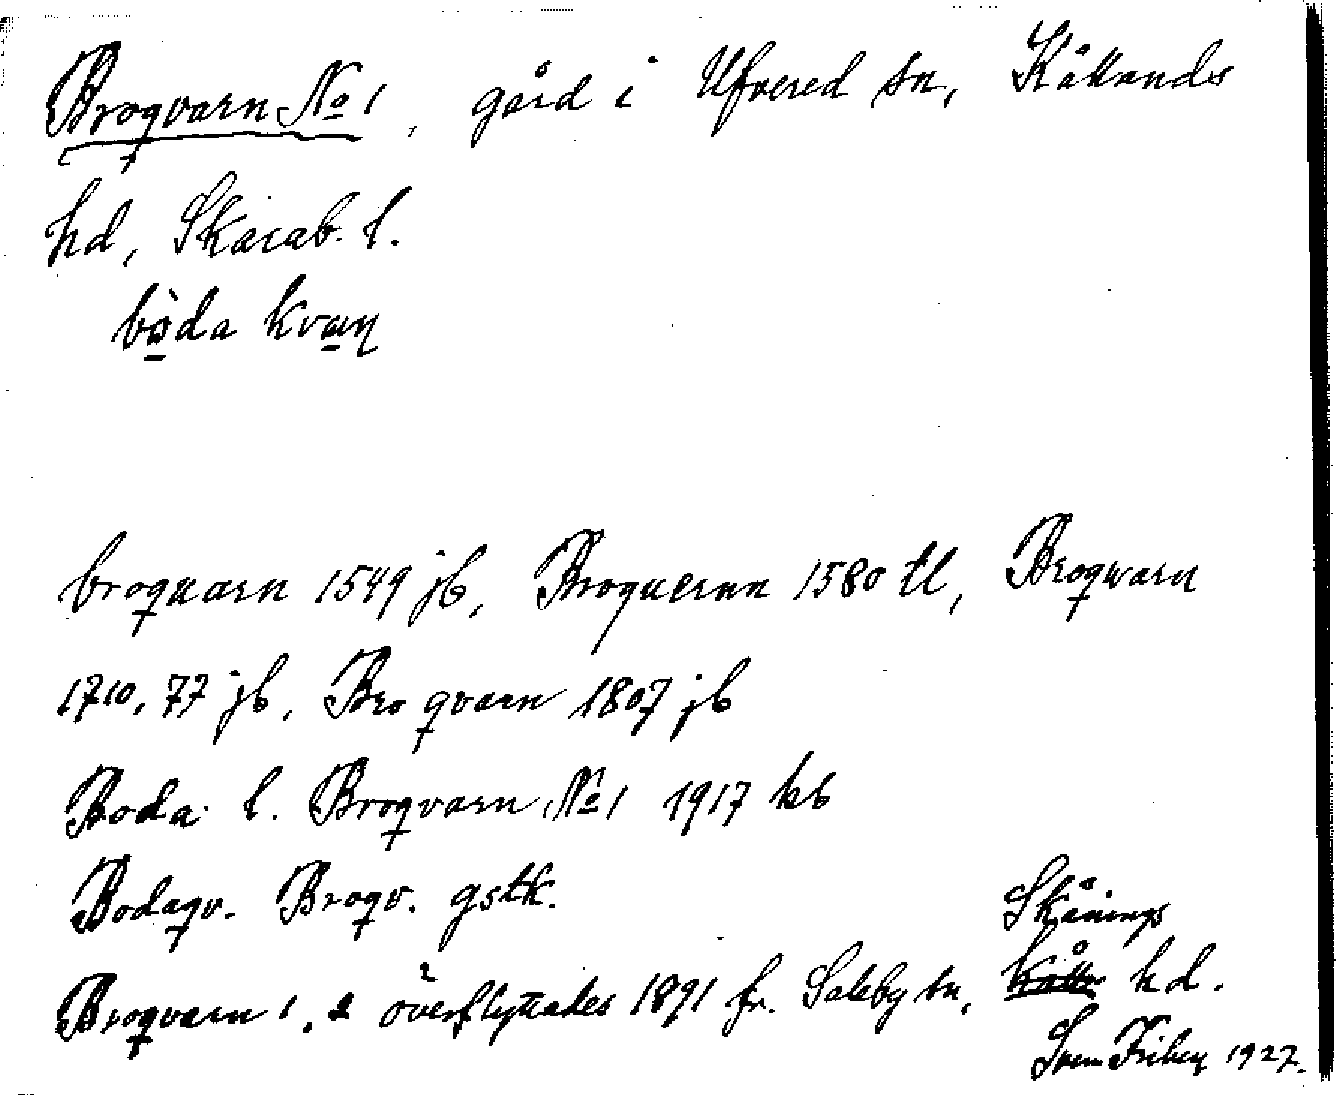 Broqvarn No 1, gård i Ufvered sn, Kållands
hd, Skarab. l.
bo̱̊da kva̱rn
broquarn 1549 jb, Broquernn 1580 tl, Broqwarn
1710, 77 jb, Bro qvarn 1807 jb
Boda l. Broqvarn No 1 1917 kb
Bodaqv. Broqv. gstk.
Broqvarn 1, 2 överflyttades 1891 fr. Saleby sn, Skånings hd.
Sven Friberg 1927.